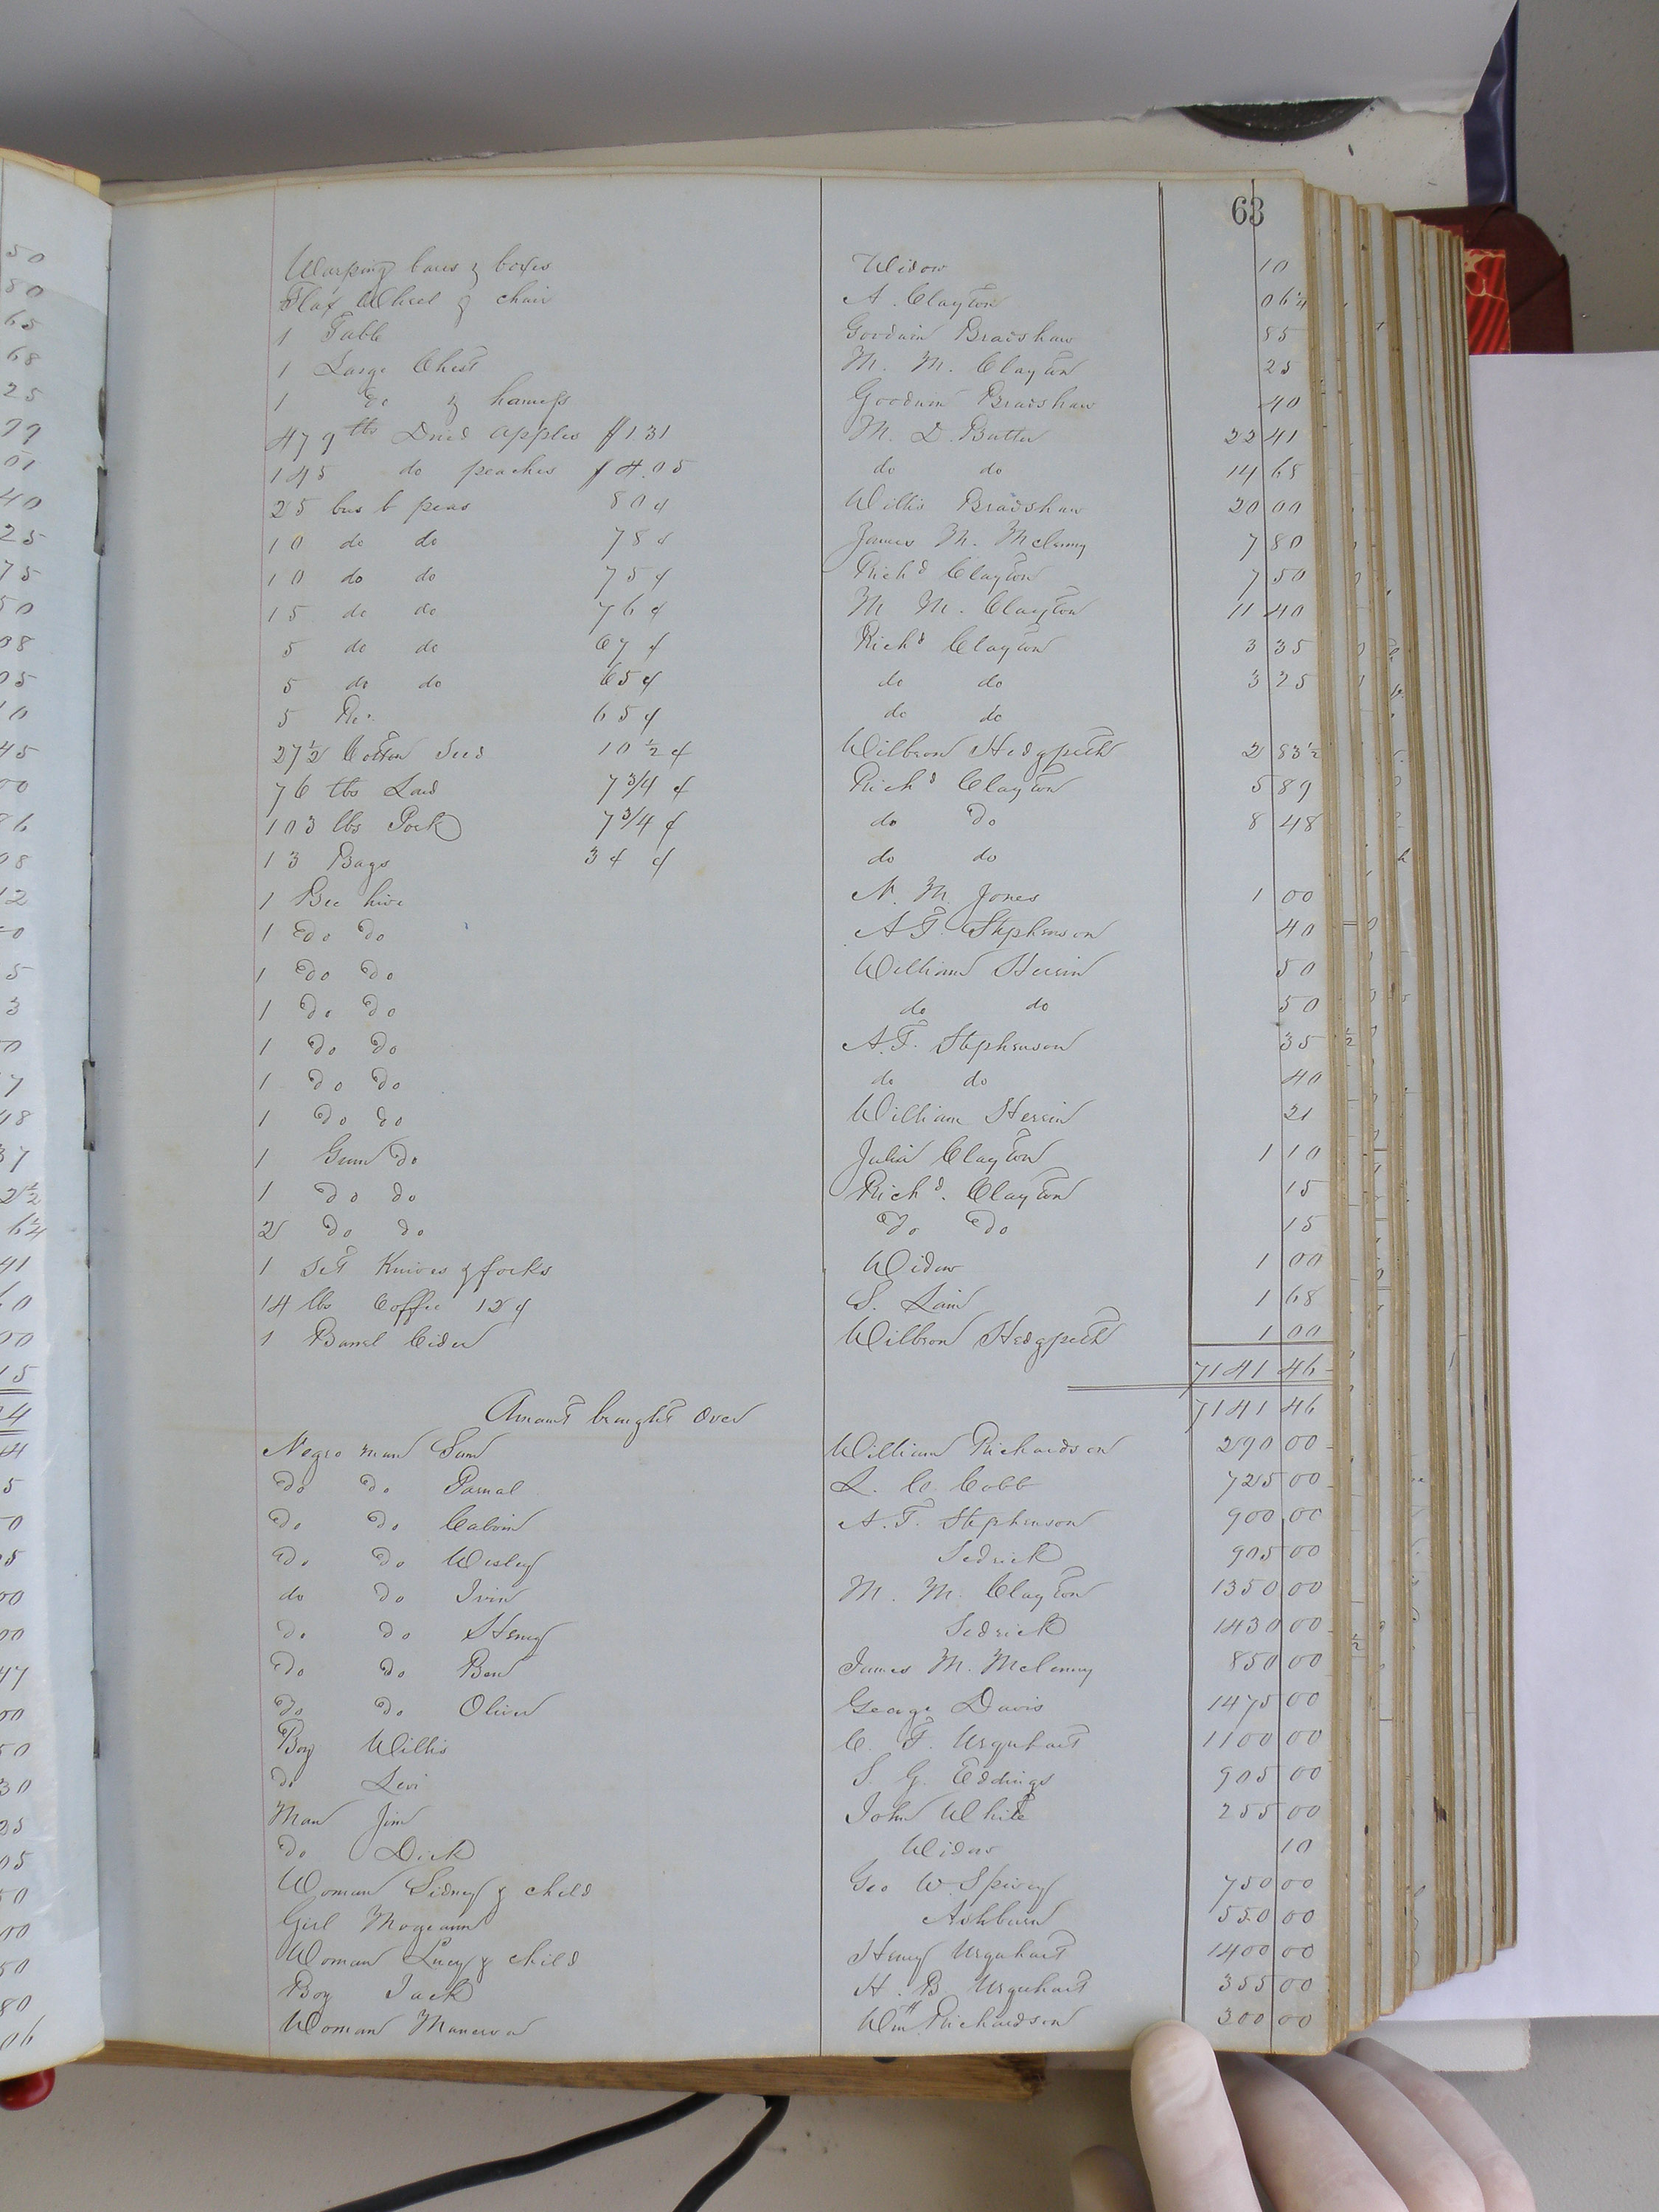 63
Warping bars & boxes Widow 10
Flax Wheel & chair A. Clayton 06¼
1 Table Goodwin Bradshaw 85
1 Large Chest M. M. Clayton 25
1 do & harness Goodwin Bradshaw 40
479 lbs Dried apples M. D. Butler 22 41
145 do peaches do do 14 65
25 bus b peas 80¢ Willis Bradshaw 20 00
10 do do 78¢ James M. McClenny 7 80
10 do do 75¢ Richd Clayton 7 50
15 do do 76¢ M M. Clayton 11 40
5 do do 67¢ Richd Clayton 3 35
5 do do 65¢ do do 3 25
5 65¢ do do
27½ Cotton Seed 10½¢ Wilbron Hedgpeth 2 83½
76 lbs Lard 7¾¢ Richd Clayton 5 89
103 lbs Pork 7¾¢ do do 8 48
13 Bags do do
1 Bee hive N. M. Jones 1 00
1 do do A. T. Stephenson 40
1 do do William Herrin 50
1 do do do do 50
1 do do A. T. Stephenson 35
1 do do do do 40
1 do do William Herrin 21
1 Gum do Julia Clayton 1 10
1 do do Richd. Clayton 15
2 do do do do 15
1 Set Knives & forks Widow 1 00
14 lbs Coffee 12¢ S. Lain 1 68
1 Barrel Cider Wilbron Hedgpeth 1 00
7141 46
Amount brought Over 7141 46
Negro man Sam William Richardson 290 00
do do Parnal L. C. Cobb 725 00
do do Calvin A. T. Stephenson 900 00
do do Wesley Sedrick 905 00
do do Ivin M. M. Clayton 1350 00
do do Henry Sedrick 1430 00
do do Ben James M. McClenny 850 00
do do Oliver George Davis 1475 00
Boy Willis C. F. Urquhart 1100 00
do Levi S. G. Eddings 905 00
Man Jim John White 255 00
do Dick Widow 10
Woman Sidney & child Geo W. Spivey 750 00
Girl Mogeann Ashburn 550 00
Woman Lucy & child Henry Urquhart 1400 00
Boy Jack H. B Urquhart 355 00
Woman Manerva Wm Richardson 300 00